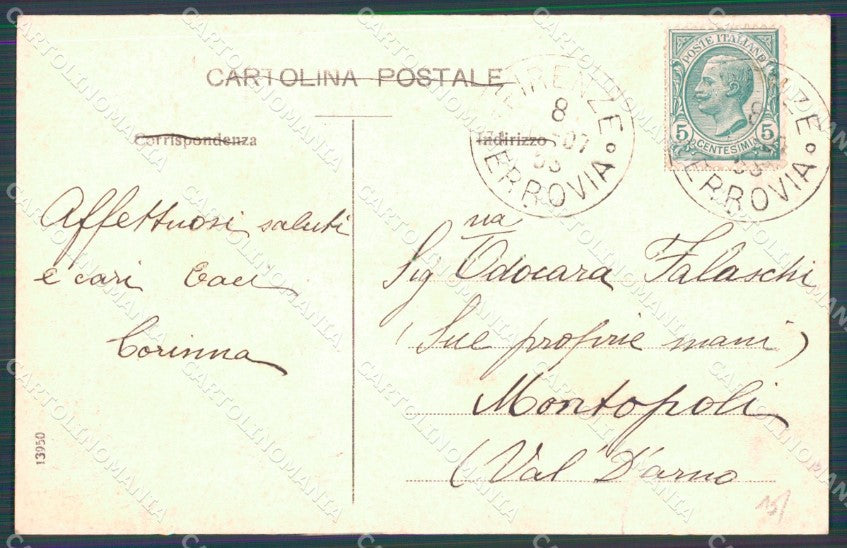 CARTOLINA POSTALE
Corrispondenza
Indirizzo
POSTE ITALIANE
5 5
CENTESIMI
FIRENZE
8
FERROVIA
FERROVIA
Affettuosi saluti
e cari baci
Corinna
Sig na Odocara Falaschi
(Sue proprie mani)
Montopoli
(Val D'arno
13950
CARTOLINOMANIA